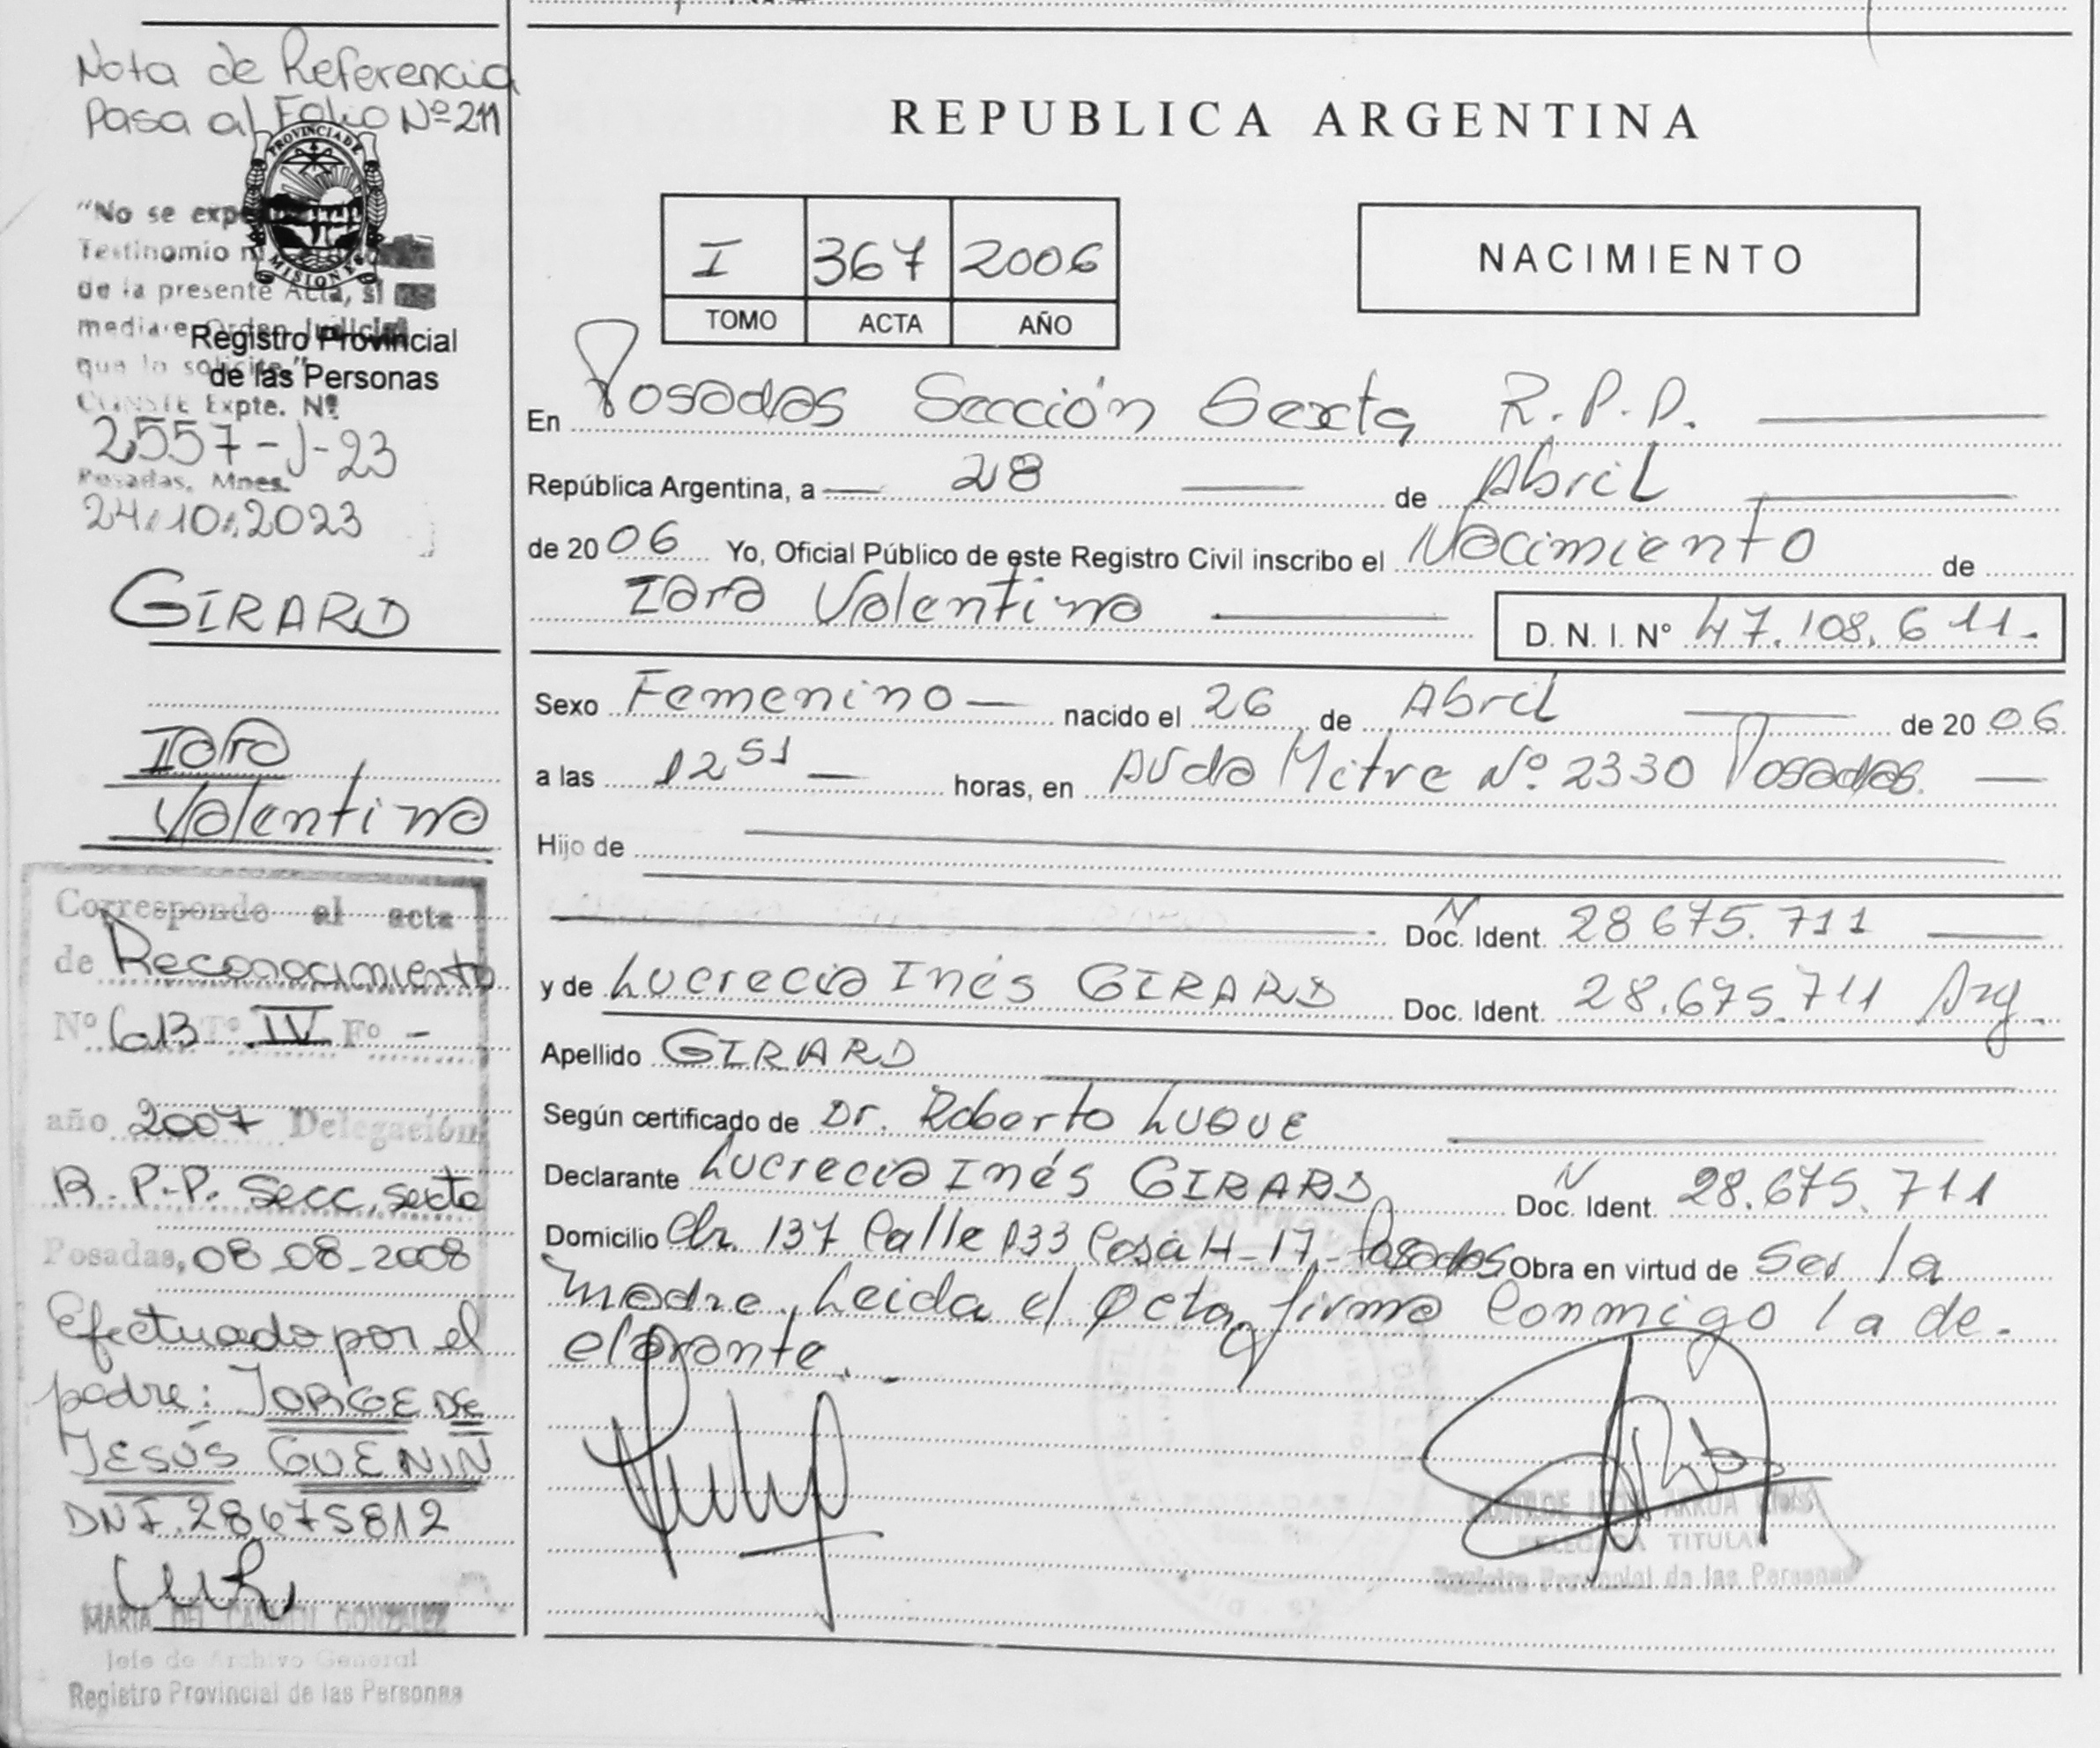 Nota de Referencia
Pasa al Folio Nº 211
PROVINCIA DE
MISIONES
"No se
Testimonio
de la presente Acta, si
Orden Judicial
que lo solicite"
Registro Provincial
de las Personas
CONSTE Expte. Nº
2557-J-23
Posadas, Mnes.
24.10.2023
GIRARD
Iara
Valentina
Corresponde al acta
de Reconocimiento
Nº 613 Tº IV Fº -
año 2007 Delegación
R.P.P. Secc. sexta
Posadas, 08-08-2008
Efectuado por el
padre: JORGE DE
JESÚS GUENIN
DNI. 28675812
MARIA DEL CARMEN GONZALEZ
Jefe de Archivo General
Registro Provincial de las Personas
REPUBLICA ARGENTINA
I 367 2006
TOMO ACTA AÑO
NACIMIENTO
En Posadas Sección Sexta R.P.P.
República Argentina, a 28 de Abril
de 2006 Yo, Oficial Público de este Registro Civil inscribo el Nacimiento de
Iara Valentina D.N.I. Nº 47.108.611.
Sexo Femenino nacido el 26 de Abril de 2006
a las 12 51 horas, en Avda Mitre Nº 2330 Posadas.
Hijo de
N
Doc. Ident. 28675.711
y de Lucrecia Inés GIRARD Doc. Ident. 28.675.711 Arg.
Apellido GIRARD
Según certificado de Dr. Roberto LUQUE
Declarante Lucrecia Inés GIRARD N Doc. Ident. 28.675.711
Domicilio Ch. 137 Calle 133 Casa H-17- Posadas Obra en virtud de Ser la
madre. Leida el Acta, firma Conmigo la de-
clarante.-
DELEGADA TITULAR
Registro Provincial de las Personas